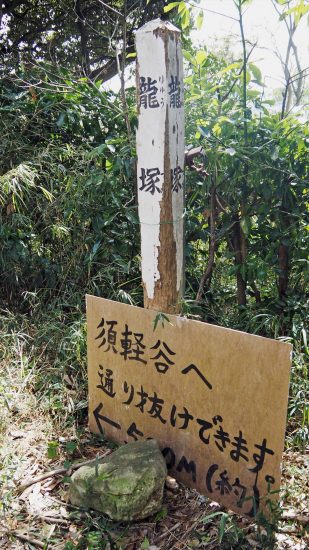 龍塚
りゅう
龍塚
須軽谷へ
通り抜けできます。
←500M(約)